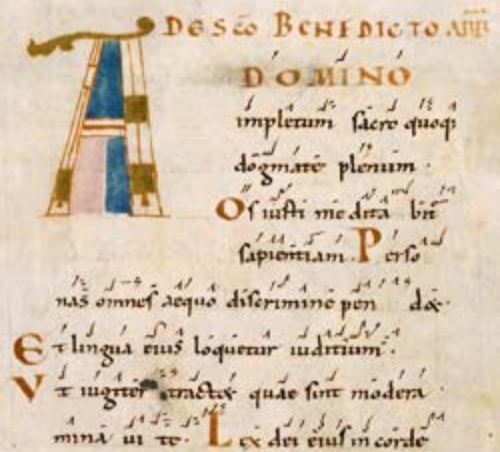 DE SCO BENEDICTO ABB
A DOMINO
impletum sacro quoq;
dogmate plenum .
Os iusti medita bit
sapientiam . Perso
nas omnes aequo discrimine pen det .
Et lingua eius loquetur iuditium .
Vt iugiter tractet quae sint modera
mina ui te . Lex dei eius in corde